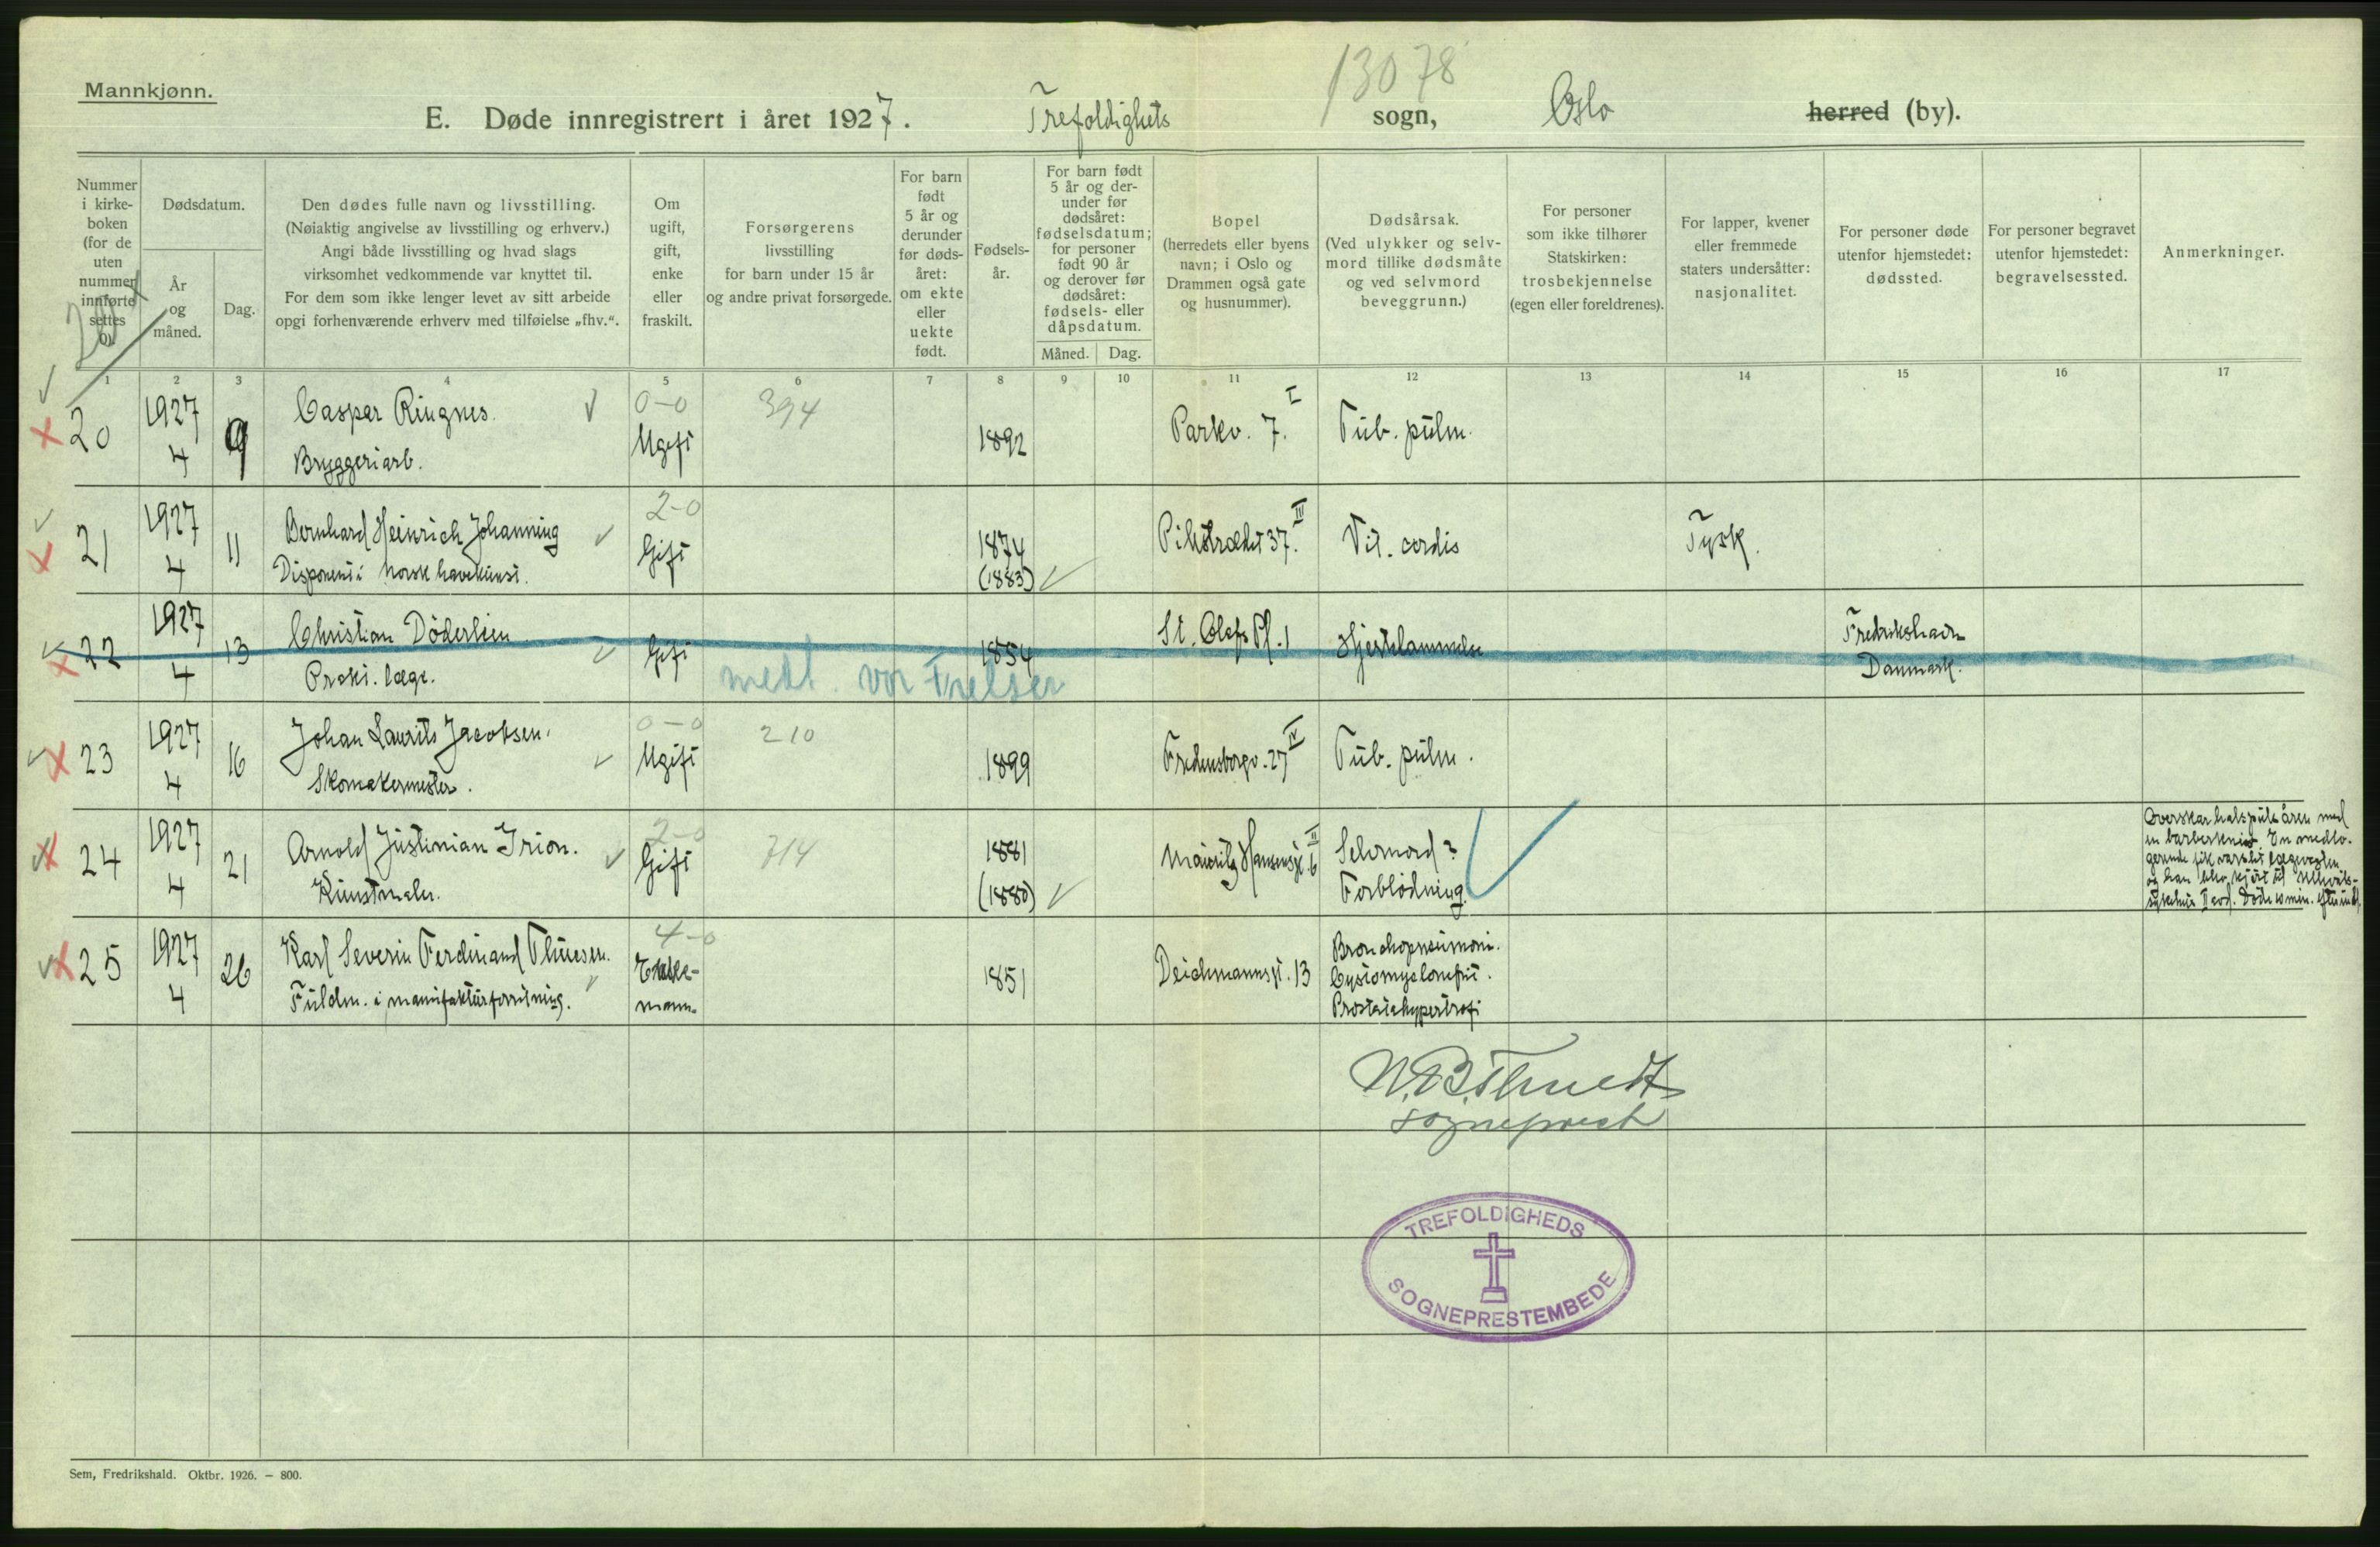 13078
Mannkjønn.
E. Døde innregistrert i året 1927. Trefoldighets sogn, Oslo herred (by).
Nummer i kirkeboken (for de uten nummer innførte settes 0).
Dødsdatum.
År og måned.
Dag.
Den dødes fulle navn og livsstilling.
(Nøiaktig angivelse av livsstilling og erhverv.)
Angi både livsstilling og hvad slags
virksomhet vedkommende var knyttet til.
For dem som ikke lenger levet av sitt arbeide
opgi forhenværende erhverv med tilføielse „fhv.“.
Om ugift, gift, enke eller fraskilt.
Forsørgerens
livsstilling
for barn under 15 år
og andre privat forsørgede.
For barn født 5 år og derunder før dødsåret: om ekte eller uekte født.
Fødselsår.
For barn født 5 år og derunder før dødsåret: fødselsdatum; for personer født 90 år og derover før dødsåret: fødsels- eller dåpsdatum.
Måned. Dag.
Bopel
(herredets eller byens
navn; i Oslo og
Drammen også gate
og husnummer).
Dødsårsak.
(Ved ulykker og selv-
mord tillike dødsmåte
og ved selvmord
beveggrunn.)
For personer
som ikke tilhører
Statskirken:
trosbekjennelse
(egen eller foreldrenes).
For lapper, kvener
eller fremmede
staters undersåtter:
nasjonalitet.
For personer døde
utenfor hjemstedet:
dødssted.
For personer begravet
utenfor hjemstedet:
begravelsessted.
Anmerkninger.
1 2 3 4 5 6 7 8 9 10 11 12 13 14 15 16 17
20 1927 4 9 Caspar Ringnes. Bryggeriarb. 0-0 Ugift 394 1892 Parkv. 7. I Tub. pulm.
21 1927 4 11 Bernhard Heinrich Johanning Disponent i norsk havekunst. 2-0 Gift 1874 (1883) Pilestrædet 37. III Vit. cordis Tysk.
22 1927 4 13 Christian Döderlein Prakt. læge. Gift 1854 St. Olafs Pl. 1 Hjertelammelse Fredrikshavn Danmark.
medl. vor Frelser
23 1927 4 16 Johan Laurits Jacobsen. Skomakermester. 0-0 Ugift 210 1899 Fredensborgv. 27 IV Tub. pulm.
24 1927 4 21 Arnold Justinian Irion. Kunstmaler. 2-0 Gift 714 1881 (1880) Mauritz Hansensgt. 6 II Selvmord? Forblödning.
Overskar halspulsåren med
en barberkniv. En medlo-
gerende fik varslet lægevagten
og han blev kjört til Ullevåls-
sykehus II avd. Döde
25 1927 4 26 Karl Severin Ferdinand Thuesen. Fuldm. i manufakturforretning. 4-0 Enke-mann. 1851 Deichmannsgt. 13 Bronchopneumoni. Cystomyelonefrit. Prostatahypertrofi
sogneprest
TREFOLDIGHEDS
SOGNEPRESTEMBEDE
Sem, Fredrikshald. Oktbr. 1926. — 800.